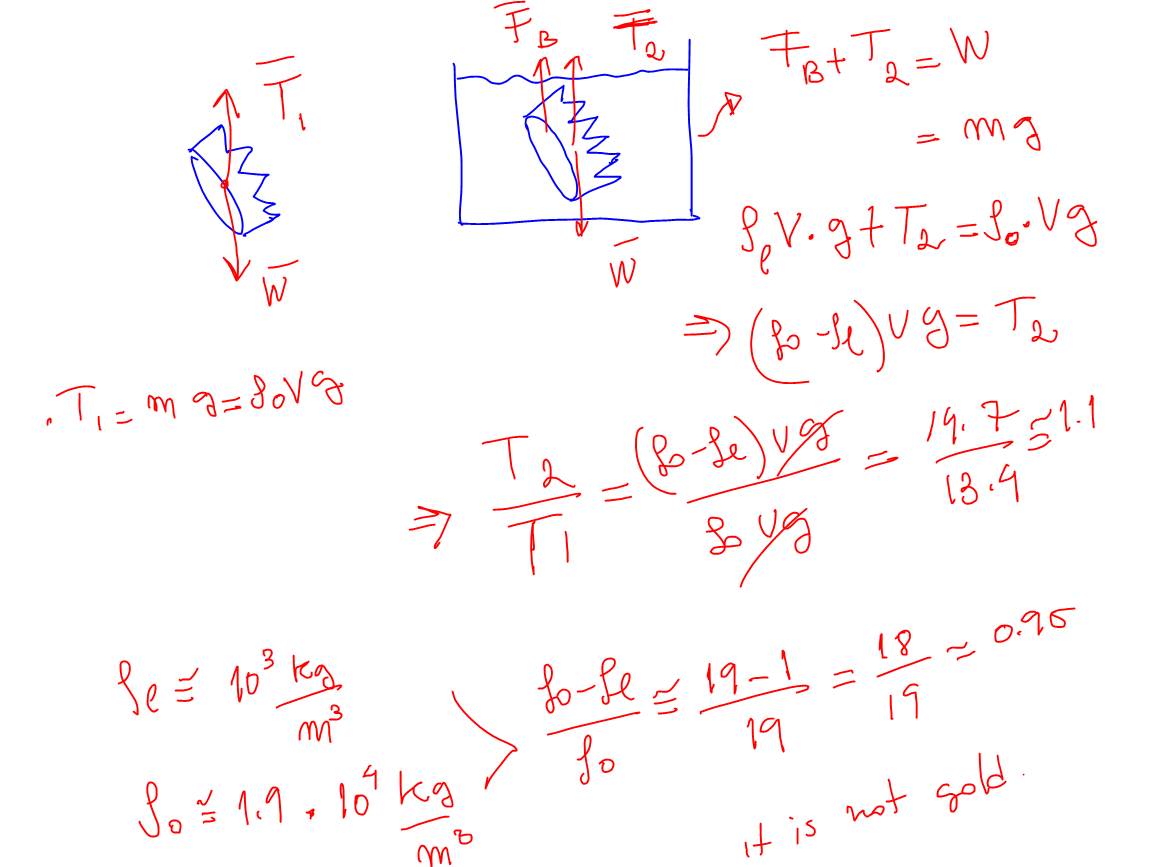 T̅₁
W̅
F̅_B T̅₂
W̅
F_B + T₂ = W
= mg
ρ_ℓ V · g + T₂ = ρ₀ · Vg
⇒ (ρ₀ - ρ_ℓ) V g = T₂
. T₁ = m g = ρ₀ V g
⇒ T₂/T₁ = (ρ₀ - ρ_ℓ) V g / ρ₀ V g = 14.7/13.4 ≅ 1.1
ρ_ℓ ≅ 10³ kg/m³
ρ₀ ≅ 1.9 · 10⁴ kg/m³
(ρ₀ - ρ_ℓ)/ρ₀ ≅ (19 - 1)/19 = 18/19 ≈ 0.95
it is not gold.